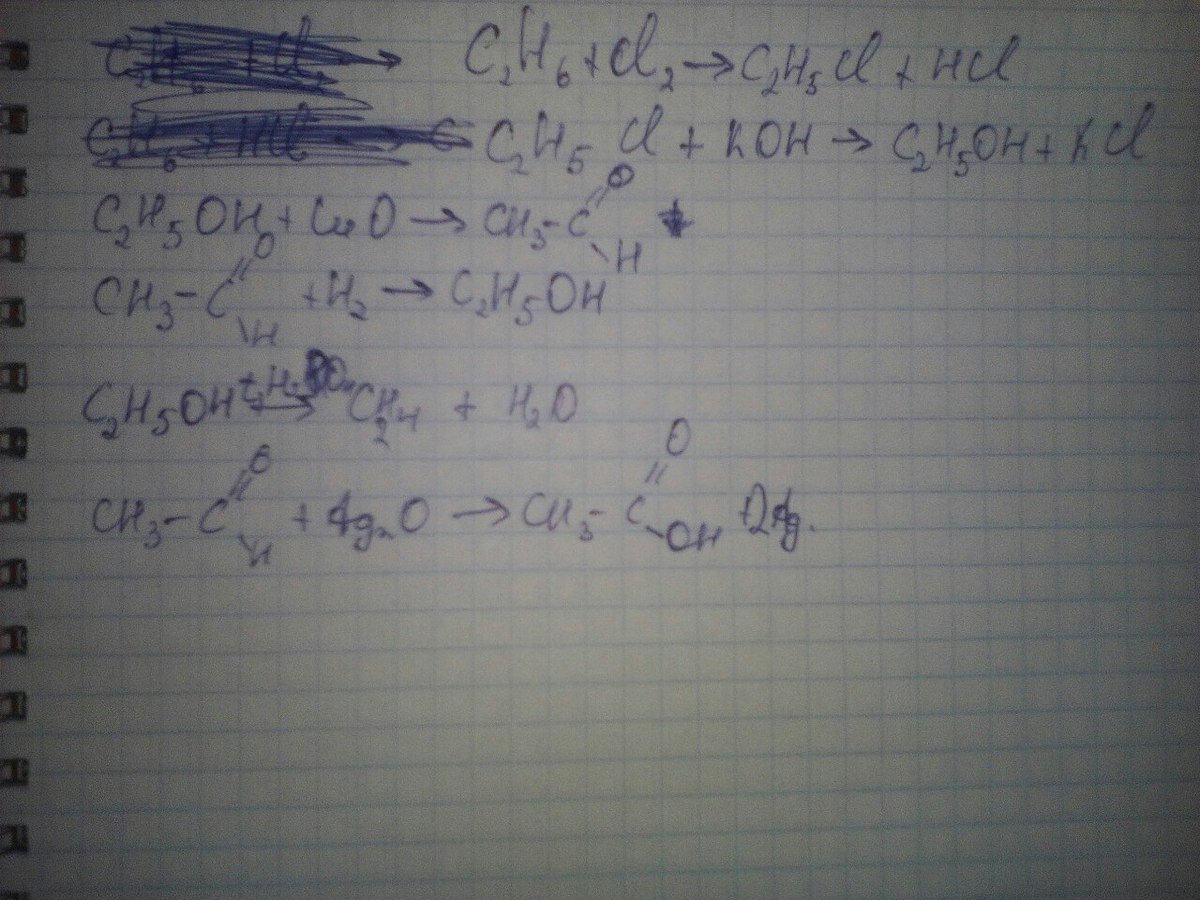 C₂H₆ + Cl₂ → C₂H₅Cl + HCl
C₂H₅Cl + KOH → C₂H₅OH + KCl
C₂H₅OH + CuO → CH₃-C(=O)-H
CH₃-C(=O)-H + H₂ → C₂H₅OH
C₂H₅OH → C₂H₄ + H₂O
CH₃-C(=O)-H + Ag₂O → CH₃-C(=O)-OH + 2Ag.